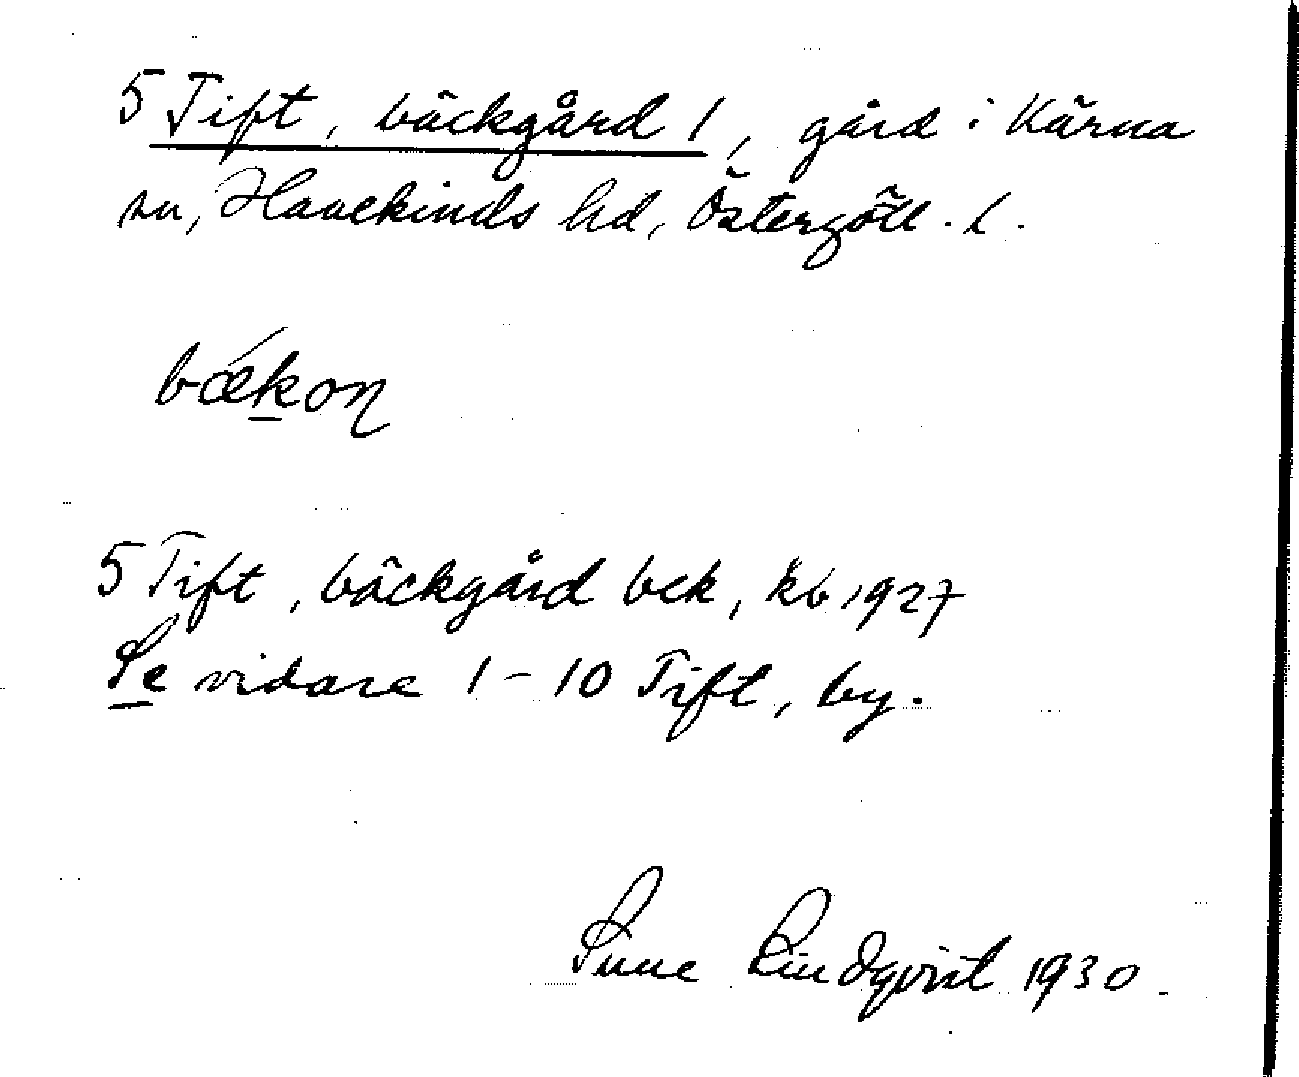 5 Tift, bäckgård 1, gård i Kärna
sn, Hanekinds hd, Östergötl. l.
bǽkon
5 Tift, bäckgård bek, kb 1927
Se vidare 1-10 Tift, by.
Sune Lindqvist 1930.